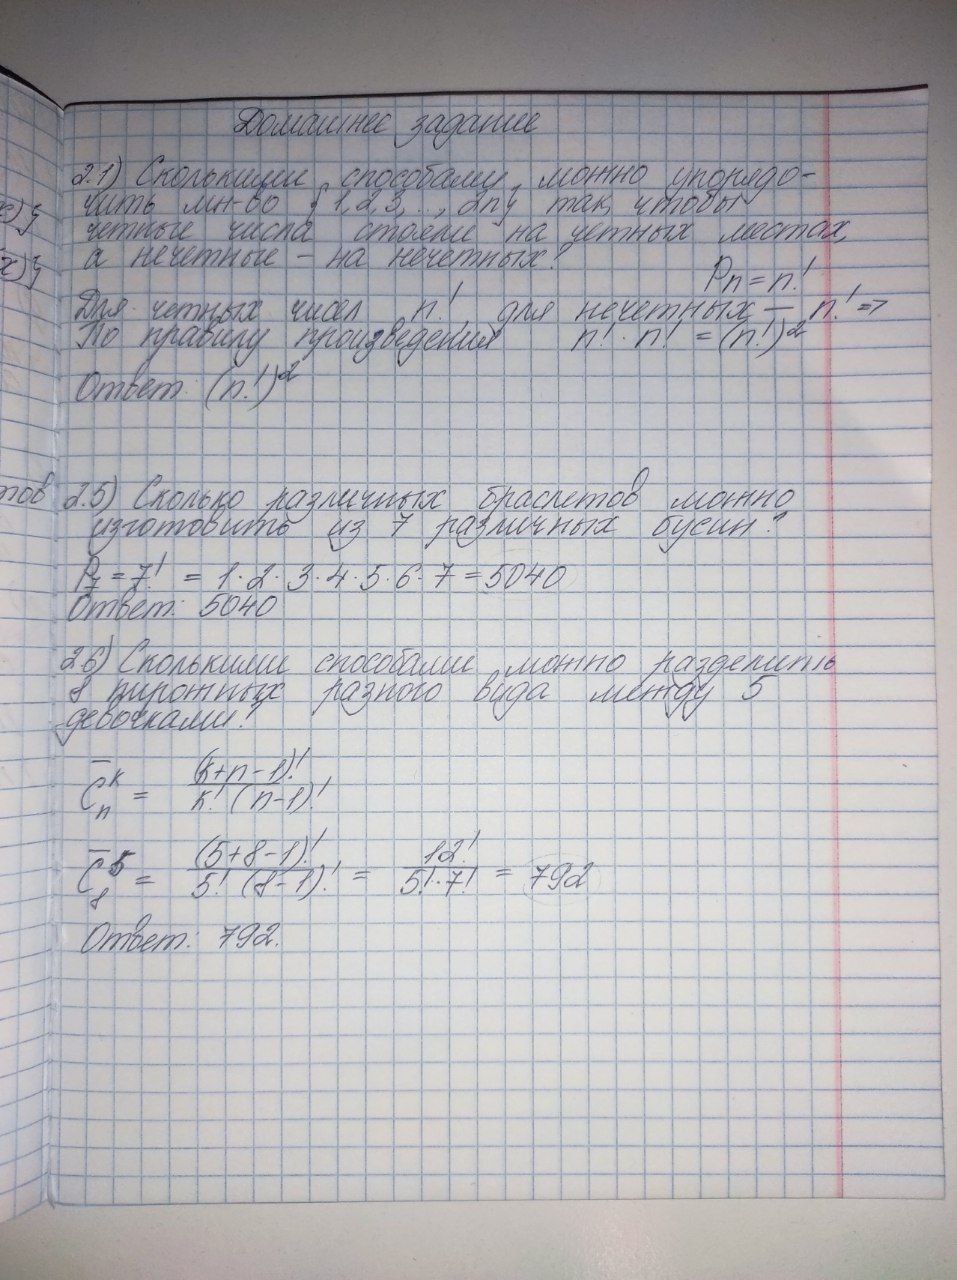 Домашнее задание
2.1) Сколькими способами можно упорядо-
чить мн-во {1,2,3,...,2n} так, чтобы
четные числа стояли на четных местах,
а нечетные – на нечетных?
Pn = n!
Для четных чисел n!, для нечетных – n! =>
По правилу произведения n! · n! = (n!)²
Ответ: (n!)²
2.5) Сколько различных браслетов можно
изготовить из 7 различных бусин?
P₇ = 7! = 1·2·3·4·5·6·7 = 5040
Ответ: 5040
2.6) Сколькими способами можно разделить
8 пирожных разного вида между 5
девочками?
C̅ₙᵏ = (k+n-1)! / k! (n-1)!
C̅₈⁵ = (5+8-1)! / 5! (8-1)! = 12! / 5!·7! = 792
Ответ: 792.
е)}
х)}
тов